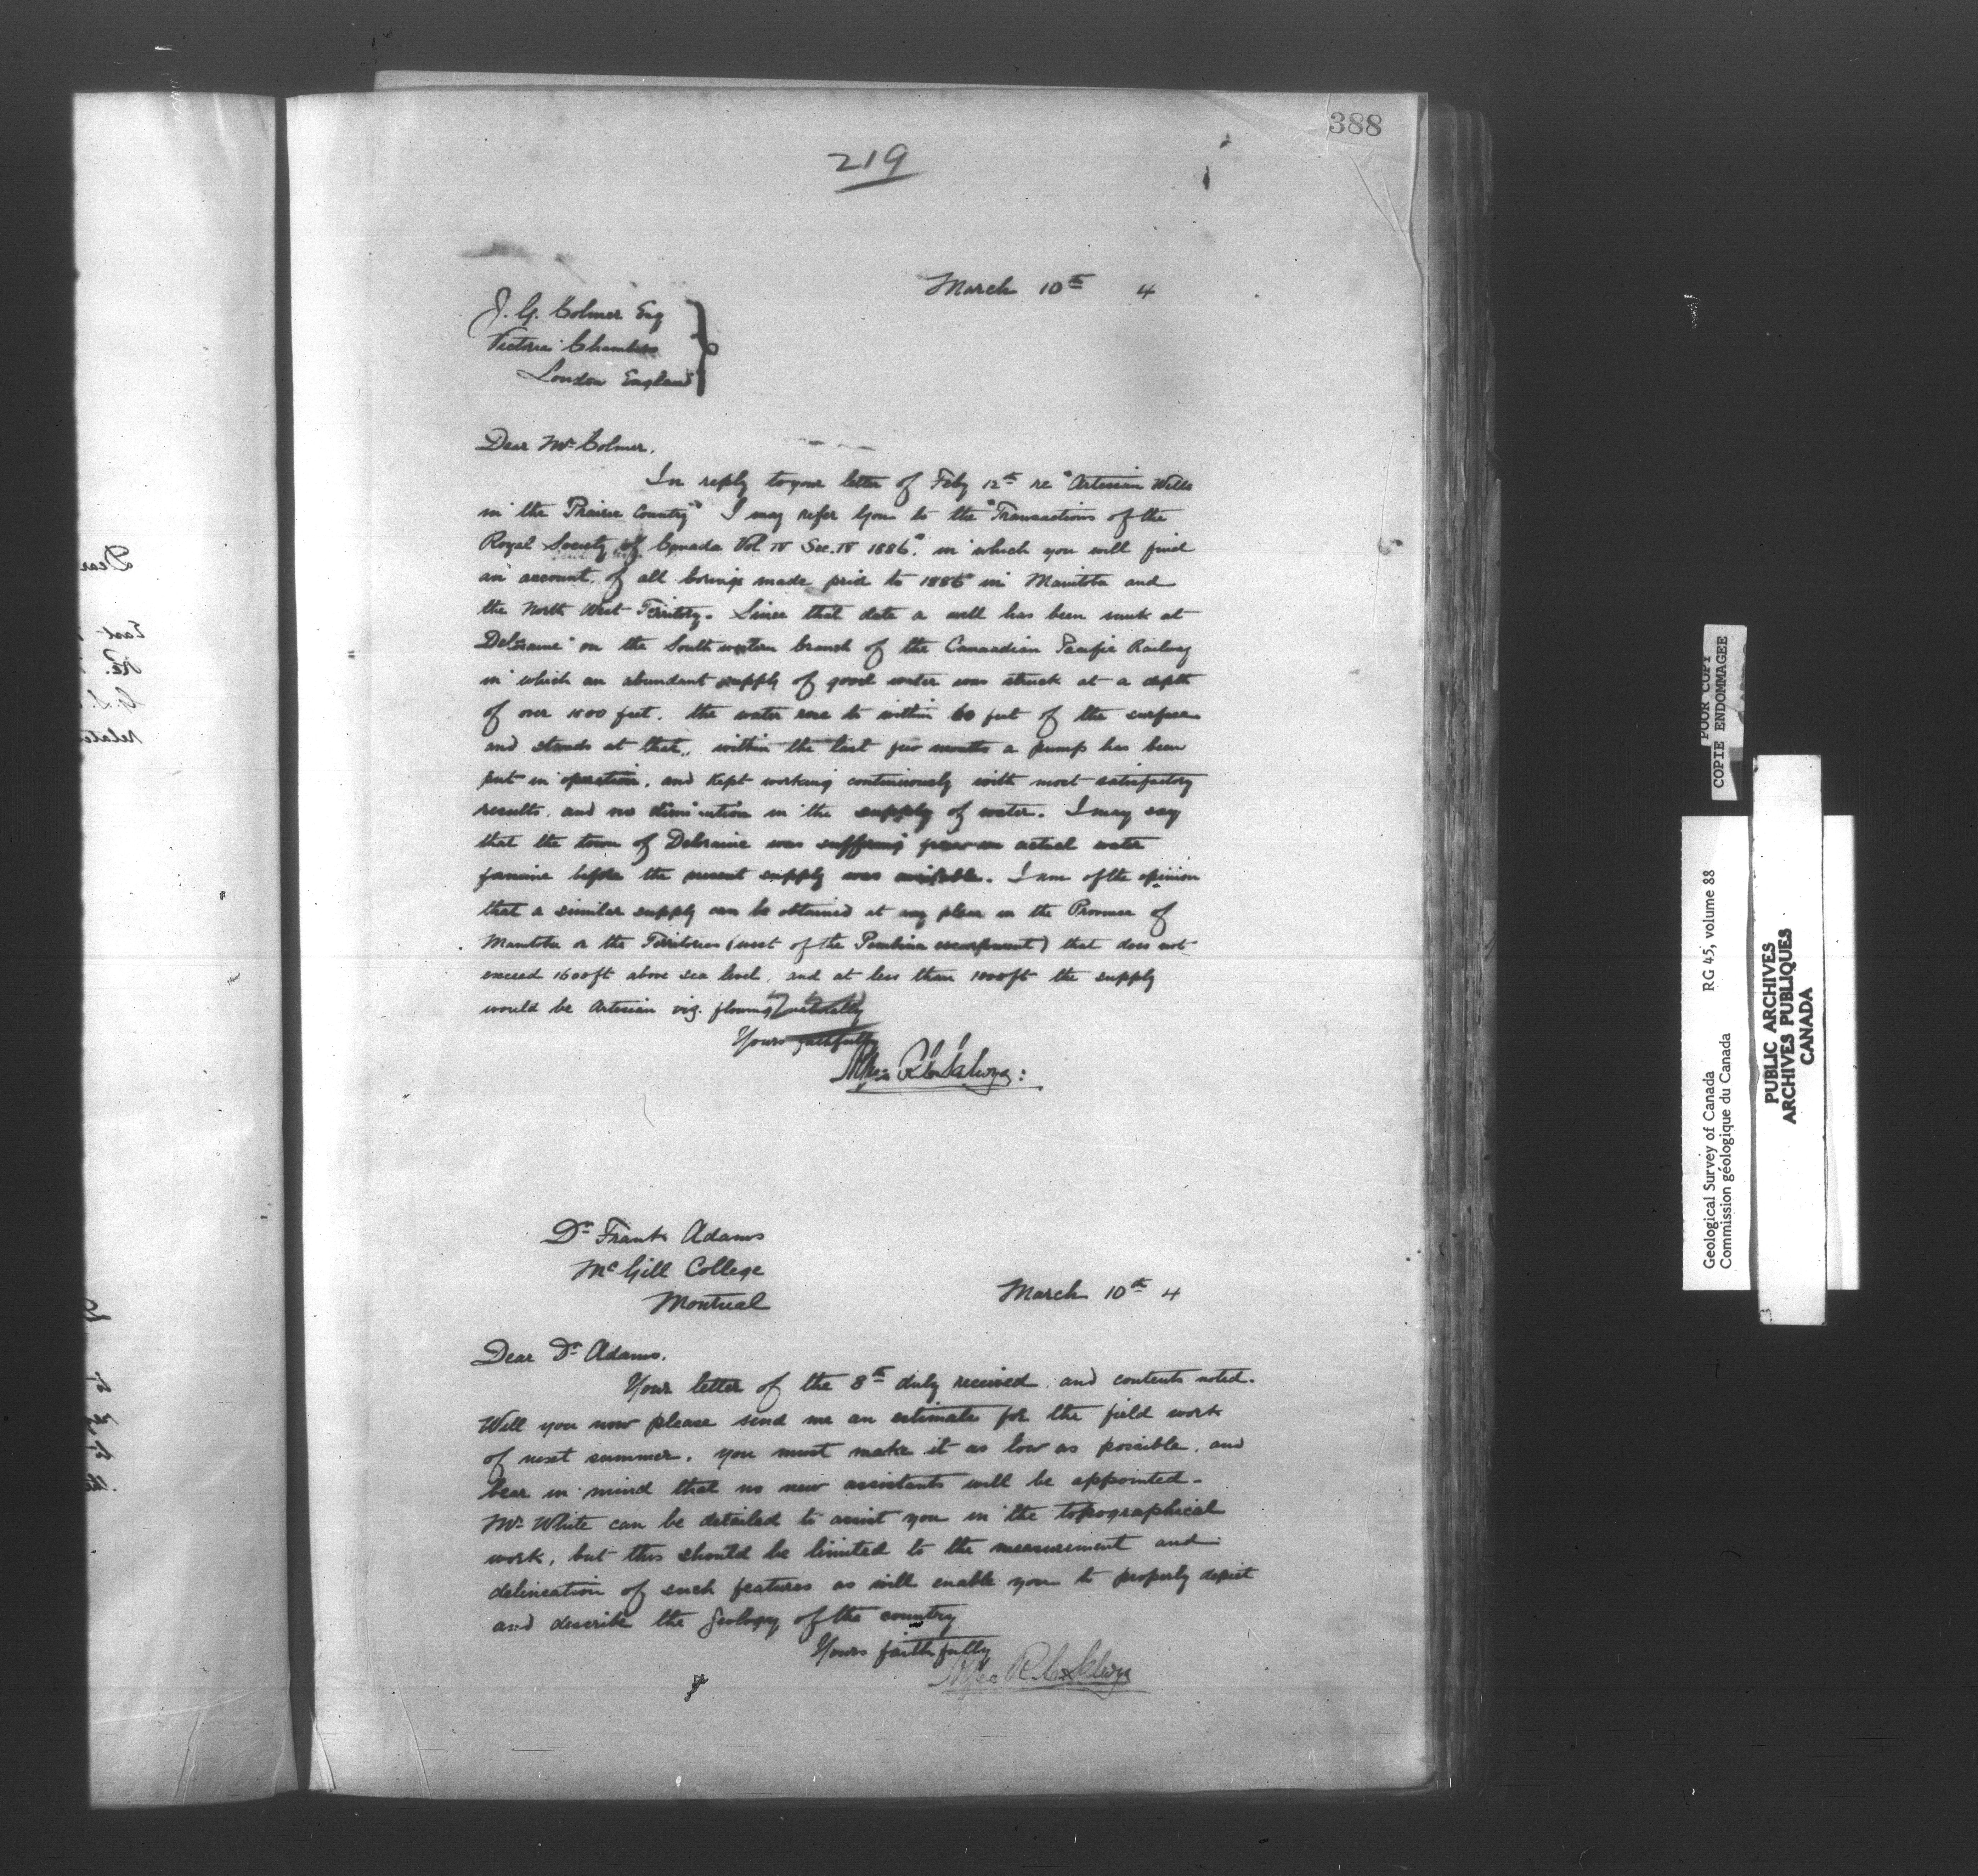 388
219
March 10th 4
J. G. Colmer Esq
Victoria Chambers
London England
Dear Mr Colmer.
In reply to your letter of Feby 12th re "Artesian Wells
in the Prairie Country" I may refer you to the "Transactions of the
Royal Society of Canada Vol IV Sec. IV 1886." in which you will find
an account of all borings made prior to 1886 in Manitoba and
the North West Territory. Since that date a well has been sunk at
Deloraine on the South western branch of the Canaadian Pacific Railway
in which an abundant supply of good water was struck at a depth
of over 1800 feet. the water rose to within 60 feet of the surface
and stands at that, within the last few months a pump has been
put in operation, and kept working continuously with most satisfactory
results, and no diminution in the supply of water. I may say
that the town of Deloraine was suffering from an actual water
famine before the present supply was available. I am of the opinion
that a similar supply can be obtained at any place in the Province of
Manitoba or the Territories (west of the Pembina escarpment) that does not
exceed 1600ft above sea level, and at less than 1000ft the supply
would be Artesian viz. flowing naturally
Yours faithfully
Alfred R. C. Selwyn:
Dr Frank Adams
McGill College
Montreal
March 10th 4
Dear Dr Adams.
Your letter of the 8th duly received and contents noted.
Will you now please send me an estimate for the field work
of next summer. you must make it as low as possible, and
bear in mind that no new assistants will be appointed-
Mr White can be detailed to assist you in the topographical
work, but this should be limited to the measurement and
delineation of such features as will enable you to properly depict
and describe the geology of the country
Yours faithfully
Alfred R. C. Selwyn
Dear
East
Re.
G. S.
relate
POOR COPY
COPIE ENDOMMAGEE
Geological Survey of Canada RG 45, volume 88
Commission géologique du Canada
PUBLIC ARCHIVES
ARCHIVES PUBLIQUES
CANADA